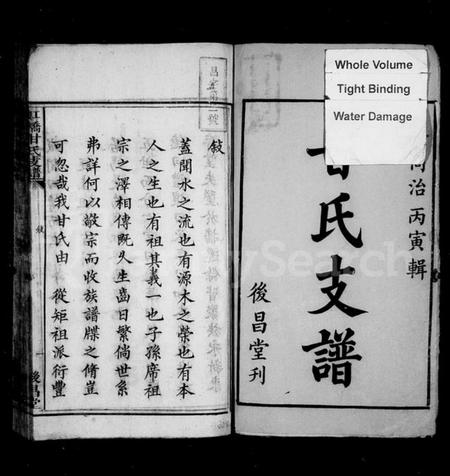 Whole Volume
Tight Binding
Water Damage
同治丙寅輯
甘氏支譜
後昌堂刊
敍
蓋聞水之流也有源木之榮也有本
人之生也有祖其義一也子孫席祖
宗之澤相傳既久生齒日繁倘世系
弗詳何以敬宗而收族譜牒之脩豈
可忽哉我甘氏由 從矩祖派衍豐
甘氏支譜
敍
一
後昌堂